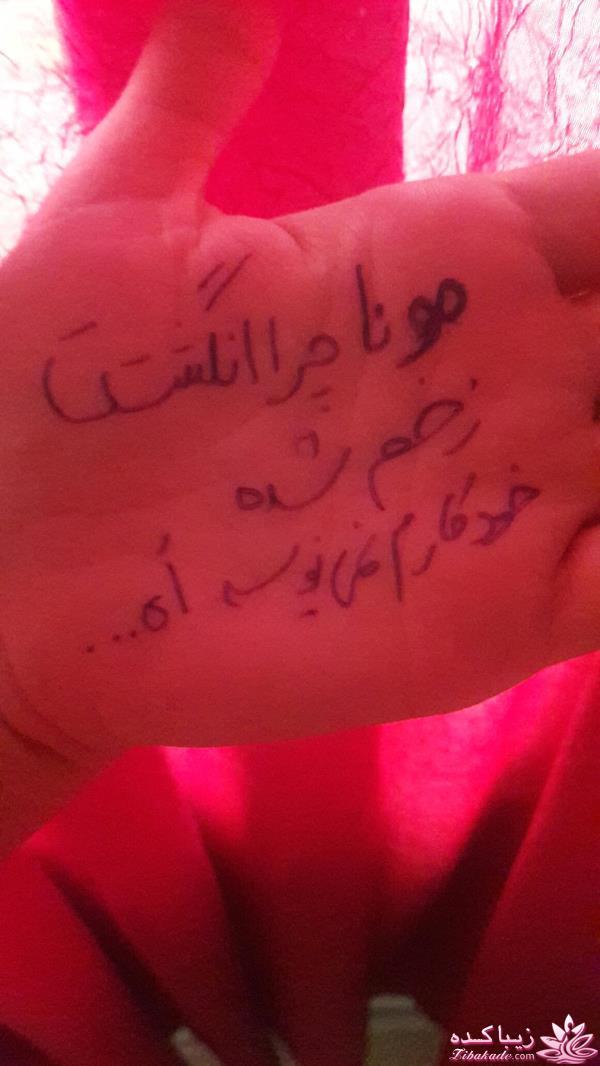 مونا چرا انگشتت
زخم شده
خودکارم نمی نویسه اَه....
زیباکده
Zibakade.com